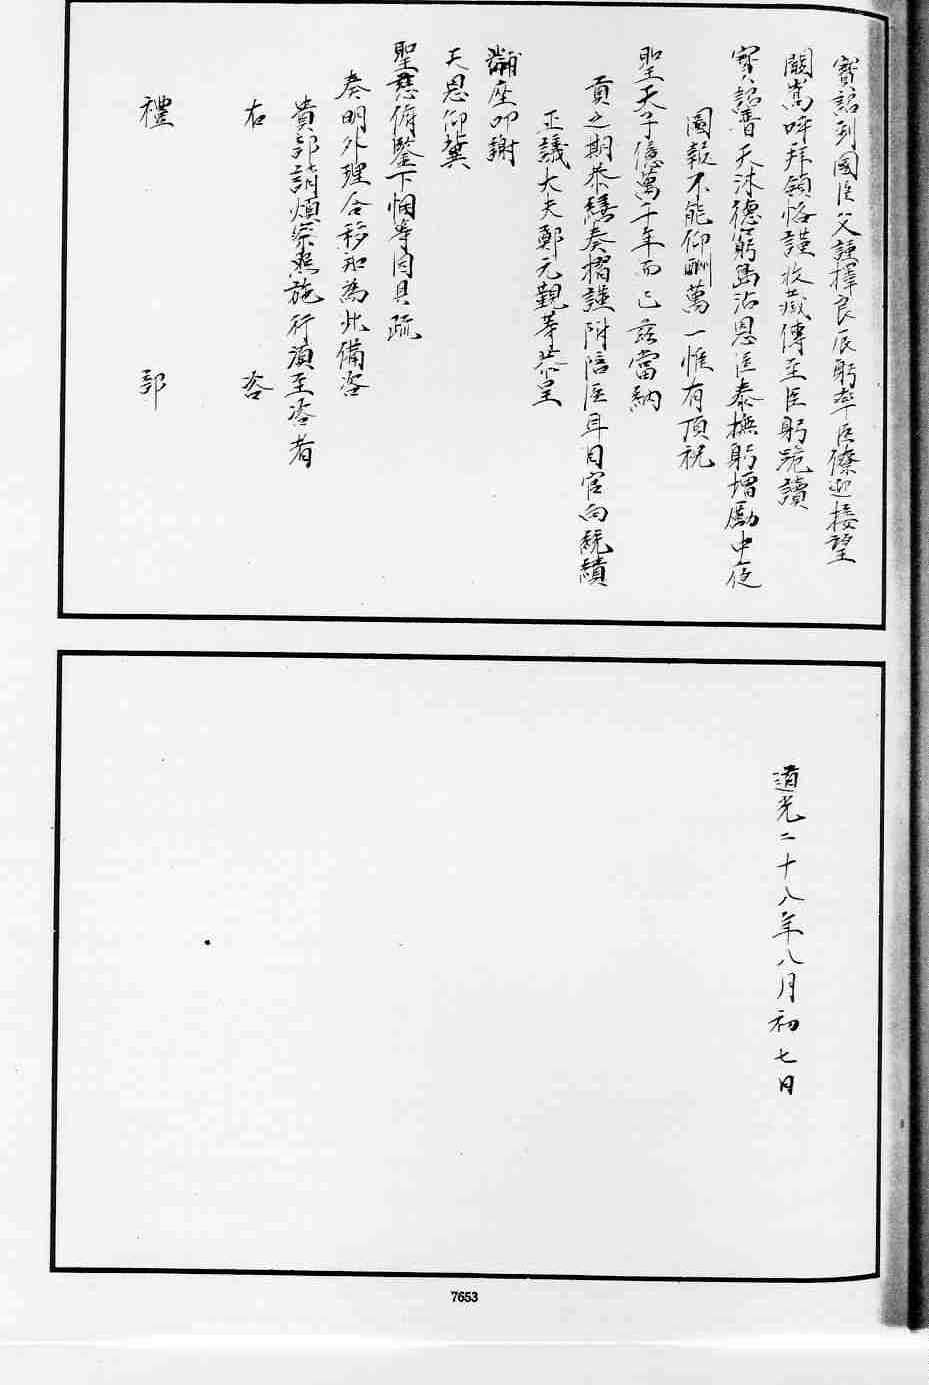 寶詔到國臣父謹擇良辰躬率臣僚迎接望
闕嵩呼拜領恪謹收藏傳至臣躬跪讀
寶詔普天沐德窮島沾恩臣泰撫躬增勵中夜
圖報不能仰酬萬一惟有頂祝
聖天子億萬千年而已茲當納
貢之期恭繕奏摺謹附陪臣耳目官向統績
正議大夫鄭元觀等恭呈
黼座叩謝
天恩仰冀
聖慈俯鑒下悃等因具疏
奏明外理合移知為此備咨
貴部請煩察照施行須至咨者
右 咨
禮 部
道光二十八年八月初七日
7653